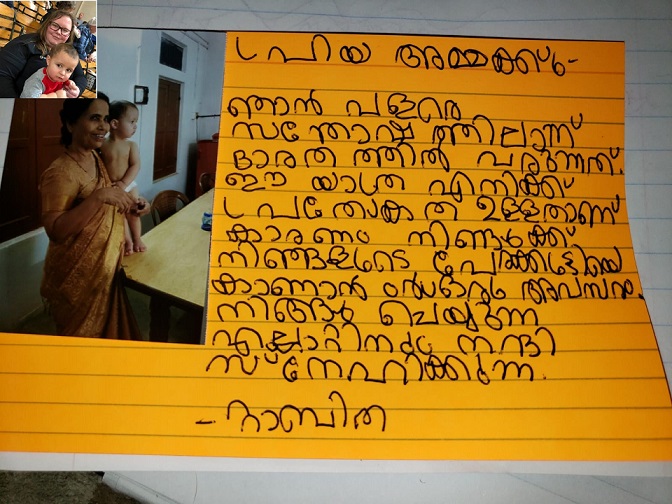 പ്രിയ അമ്മക്ക്-
ഞാൻ വളരെ
സന്തോഷത്തിലാണ്
ഭാരതത്തിൽ വരുന്നത്.
ഈ യാത്ര എനിക്ക്
പ്രത്യേകത ഉള്ളതാണ്
കാരണം നിങ്ങൾക്ക്
നിങ്ങളുടെ പേരക്കുട്ടിയെ
കാണാൻ അവസരം.
നിങ്ങൾ ചെയ്യുന്ന
എല്ലാറ്റിനും നന്ദി
സ്നേഹിക്കുന്ന
- റ്റാബിത